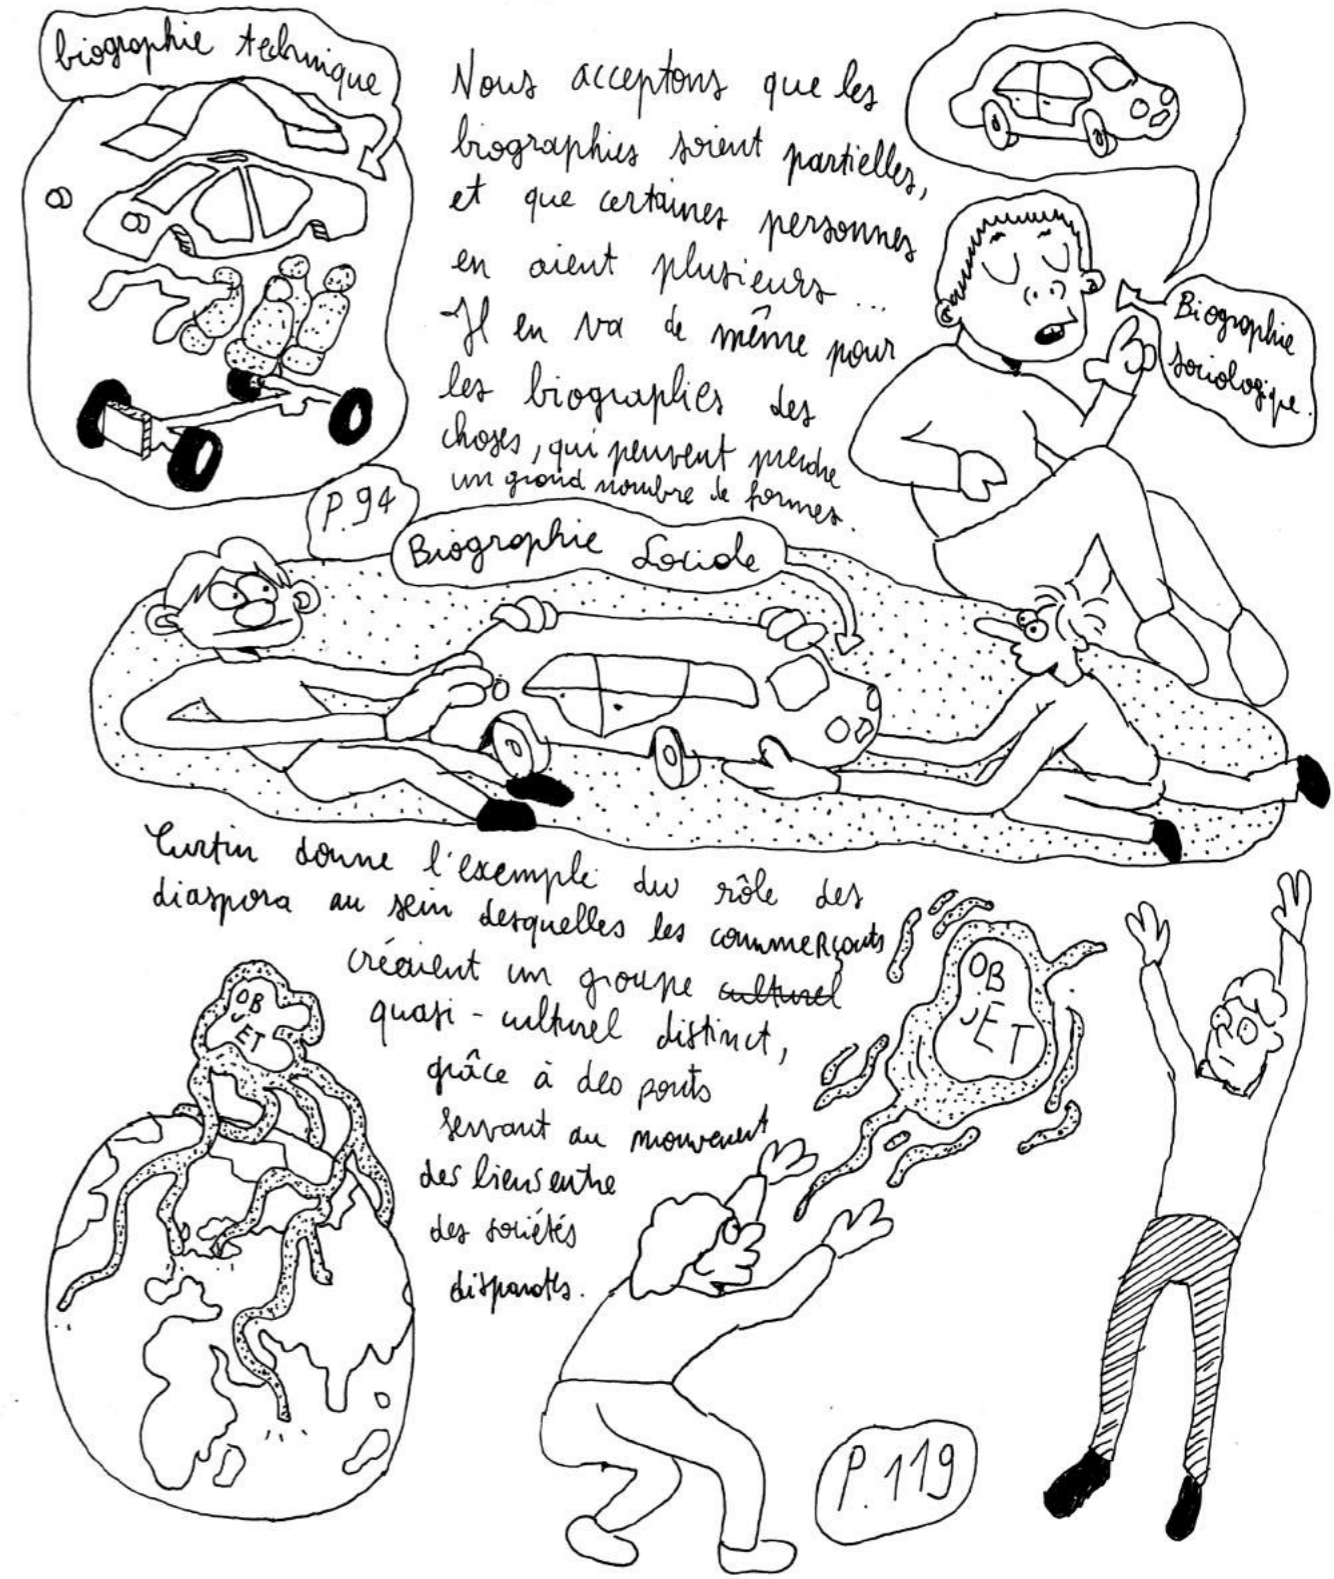 biographie technique
Nous acceptons que les
biographies soient partielles,
et que certaines personnes
en aient plusieurs ...
Il en va de même pour
les biographies des
choses, qui peuvent prendre
un grand nombre de formes.
Biographie
sociologique.
P.94
Biographie Sociale
Curtin donne l'exemple du rôle des
diaspora au sein desquelles les commerçants
créaient un groupe culturel
quasi-culturel distinct,
grâce à des ponts
servant au mouvement
des liens entre
des sociétés
disparates.
OB
JET
OB
JET
P.119